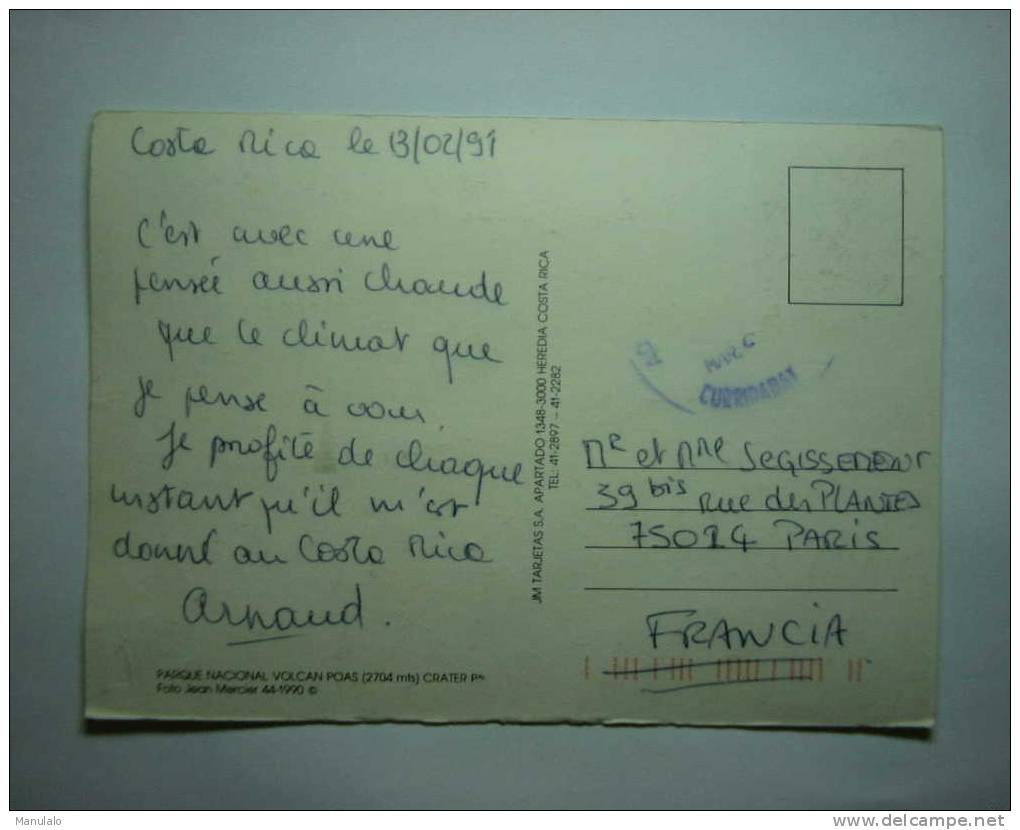 Costa Rica le 13/02/91
C'est avec une
pensée aussi chaude
que le climat que
je pense à vous.
Je profite de chaque
instant qu'il m'est
donné au Costa Rica
Arnaud.
PARQUE NACIONAL VOLCAN POAS (2704 mts) CRATER
Foto Jean Mercier 44-1990 ©
JM TARJETAS S.A. APARTADO 1348-3000 HEREDIA COSTA RICA
TEL: 41-2897 - 41-2282
CURRIDABAT
Mr et Mme SEGISSEMENT
39 bis Rue des PLANTES
75014 PARIS
FRANCIA
Manulalo
delcampe.net